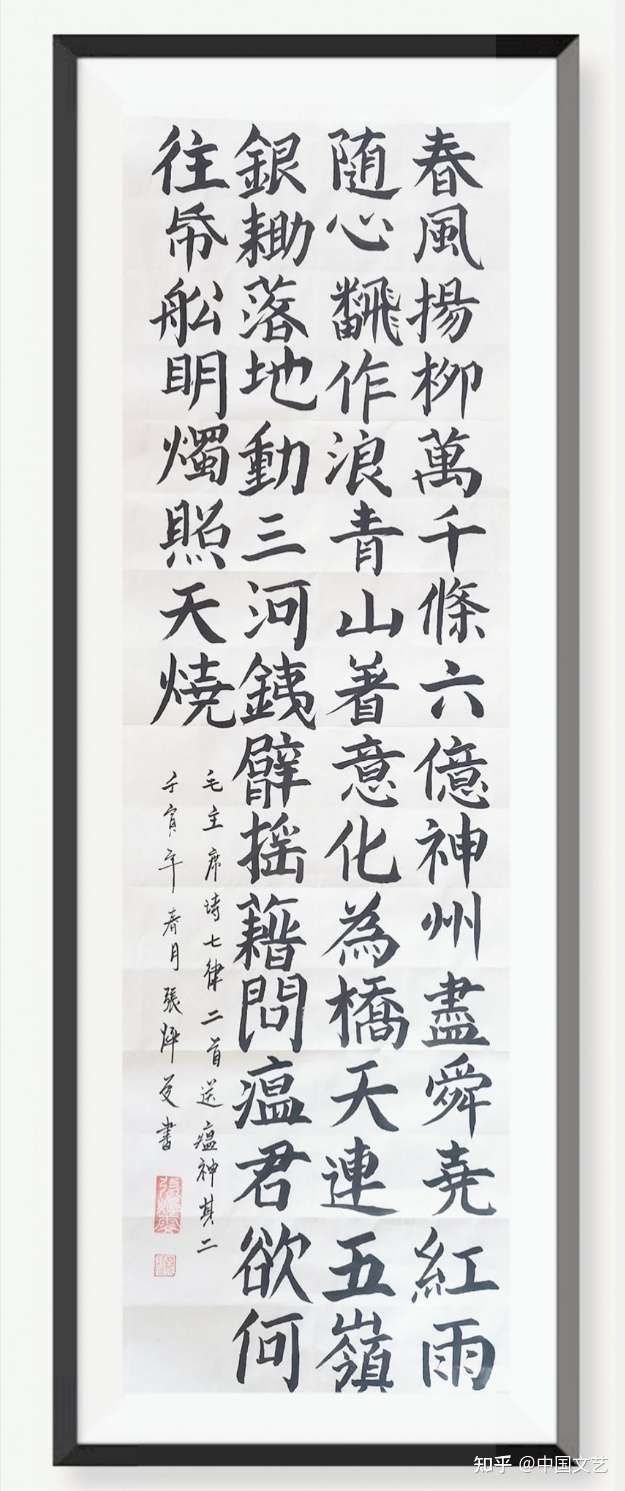 春風揚柳萬千條六億神州盡舜堯紅雨
随心飜作浪青山著意化為橋天連五嶺
銀耡落地動三河銕臂摇藉問瘟君欲何
往帋舩明燭照天燒
毛主席诗七律二首送瘟神其二
壬寅年春月張書
知乎 @中国文艺